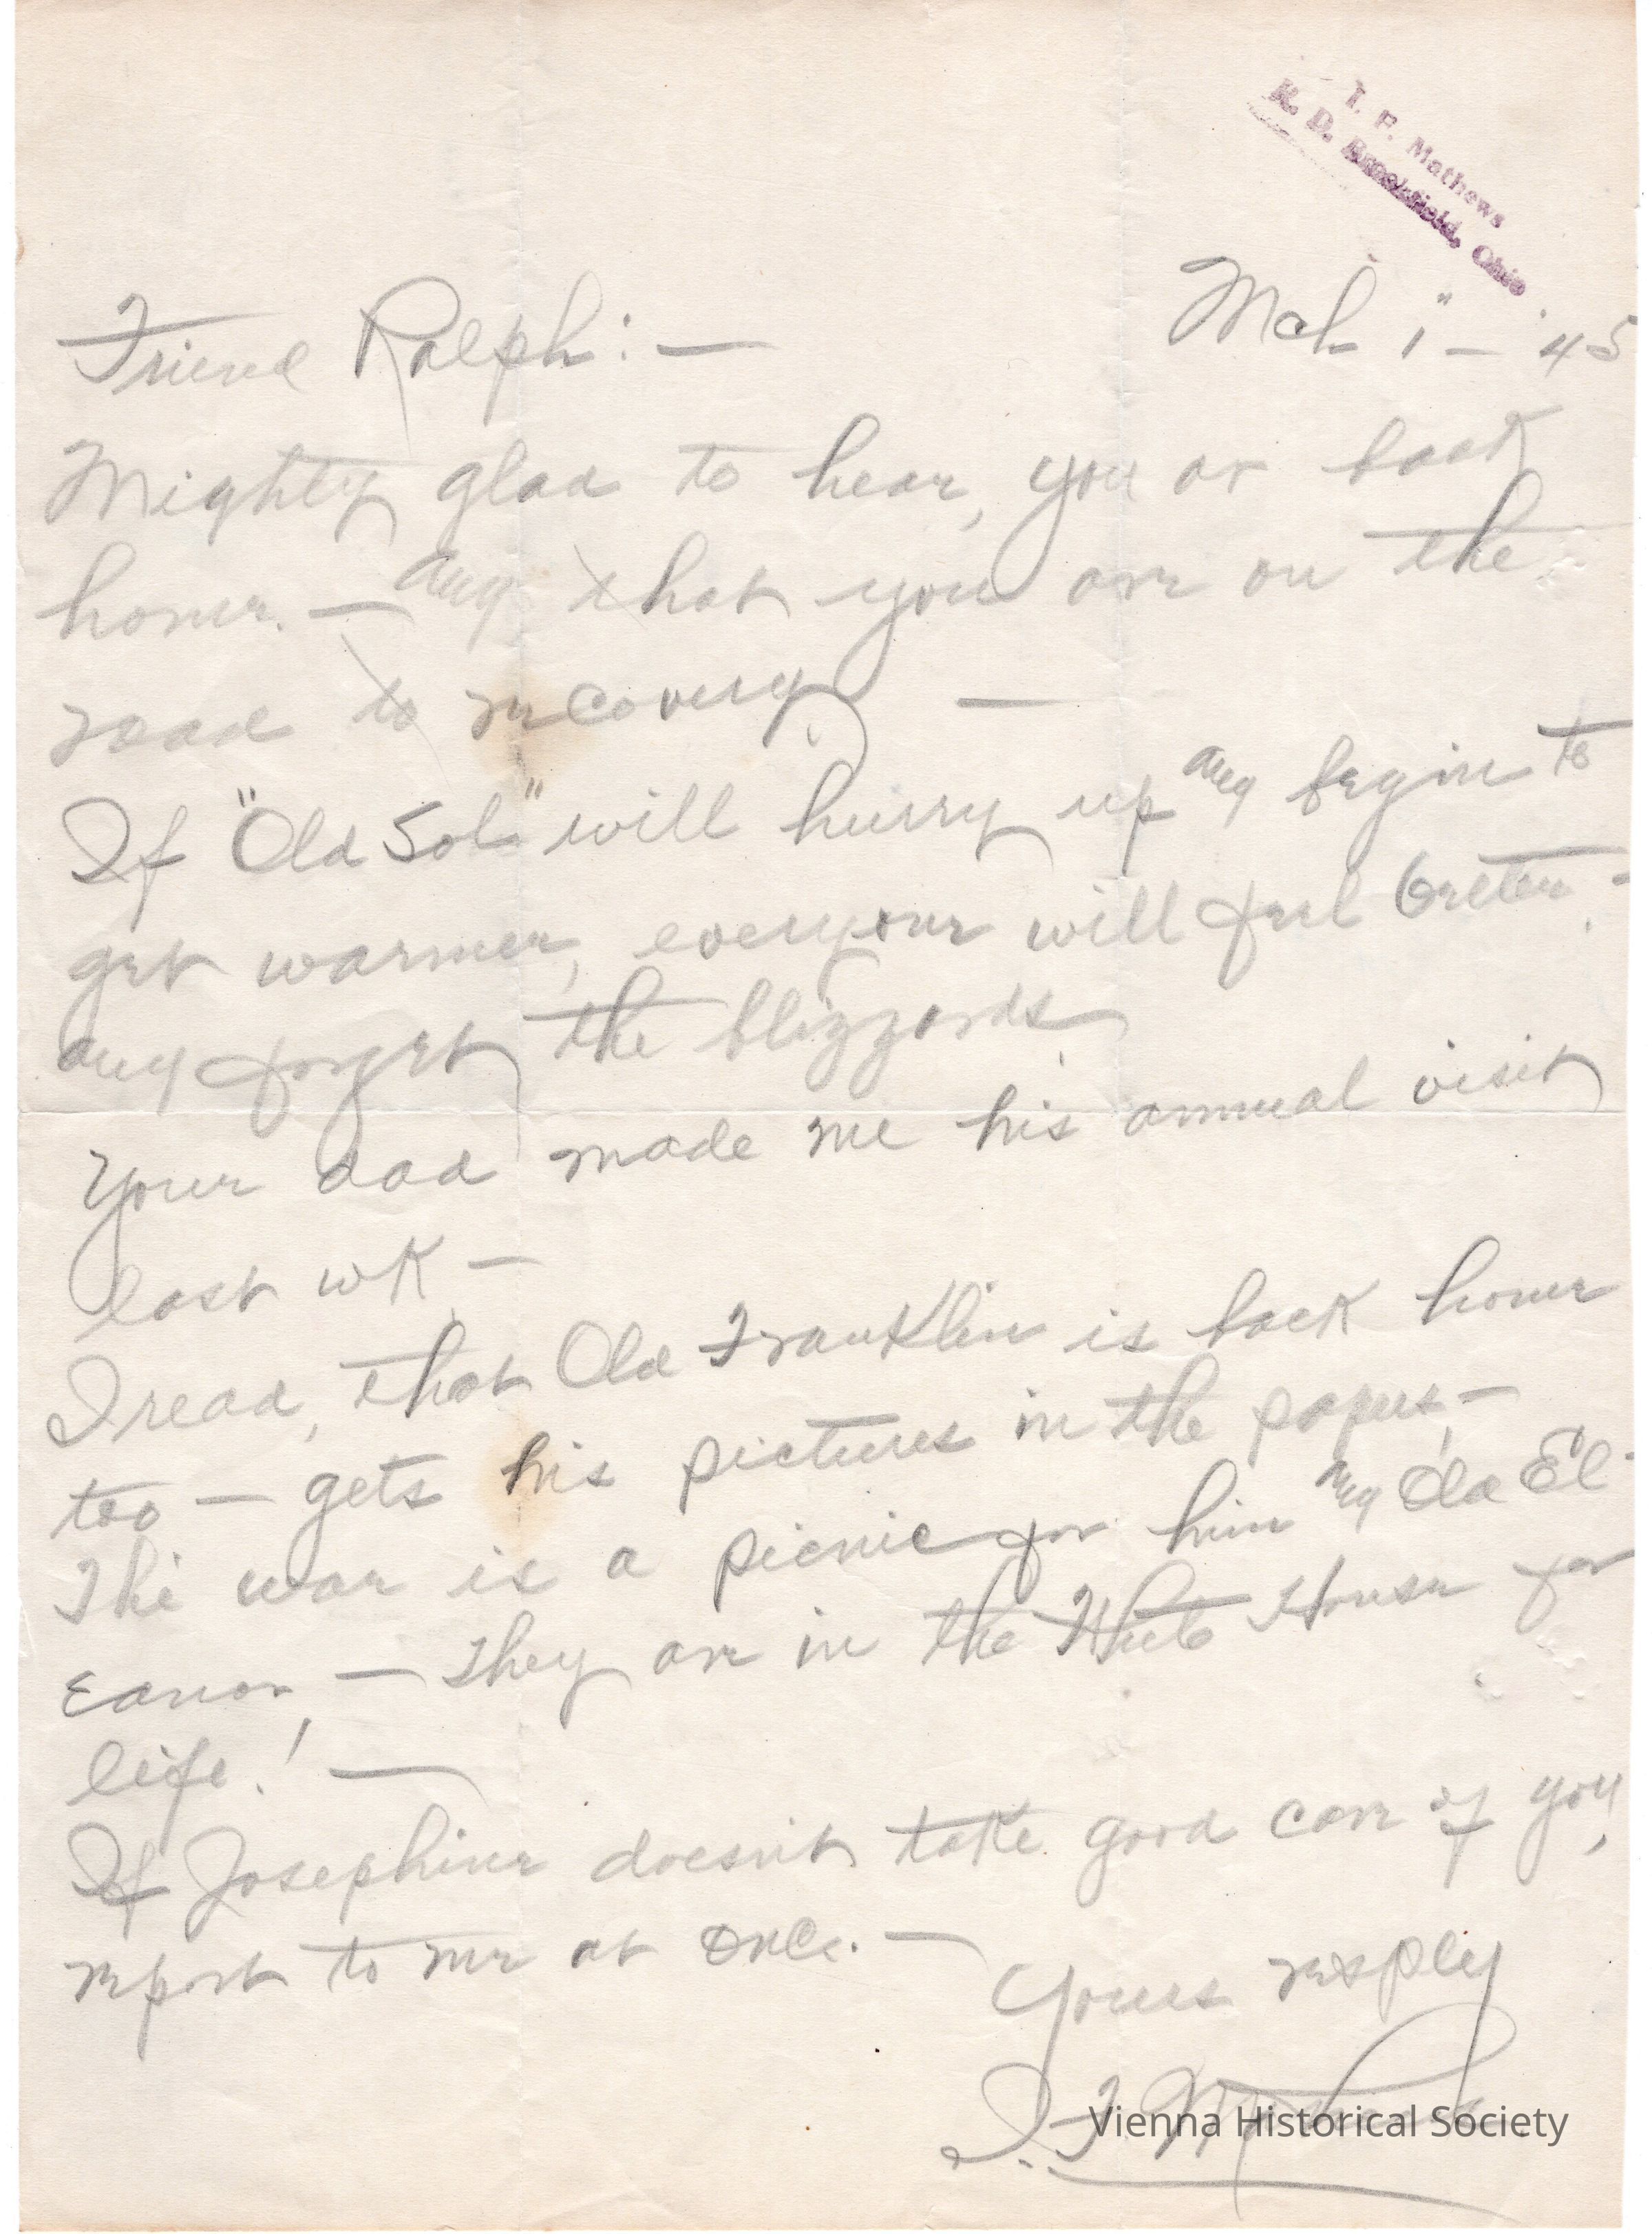 I. F. Mathews
R. D. Brookfield, Ohio
Friend Ralph: — Mch 1" - '45
Mighty glad to hear, you ar back
home. — any that you are on the
road to recovery —
If "Old Sol" will hurry up any begin to
get warmer, everyone will feel better. -
any forget the blizzards
Your dad made me his annual visit
last wk —
I read, that Old Franklin is back home
too — gets his pictures in the papers, —
The war is a picnic for him any Old El-
eanor, — They are in the White House for
life! —
If Josephine doesn't take good care of you,
report to me at once. —
Yours resply
I. F. Mathews
Vienna Historical Society